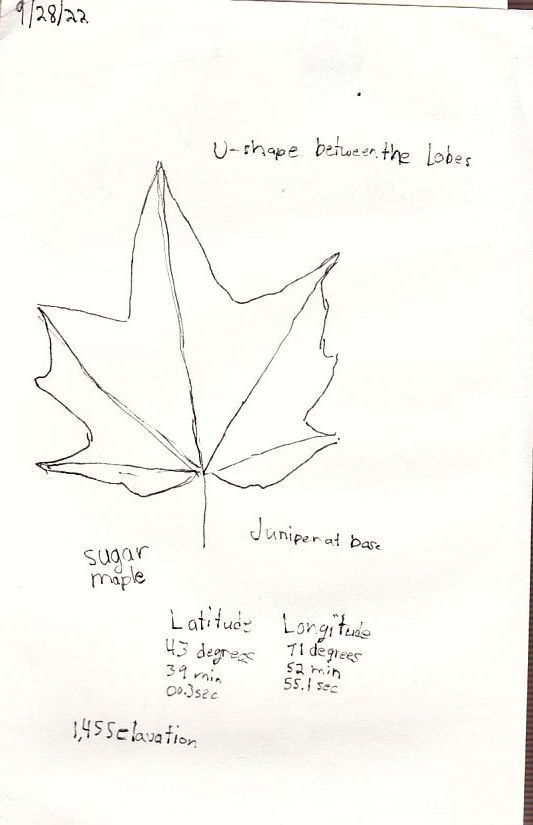 9/28/22
U-shape between the Lobes
Juniper at base
sugar
maple
Latitude Longitude
43 degrees 71 degrees
39 min 52 min
00.3sec 55.1 sec
1,455 elavation